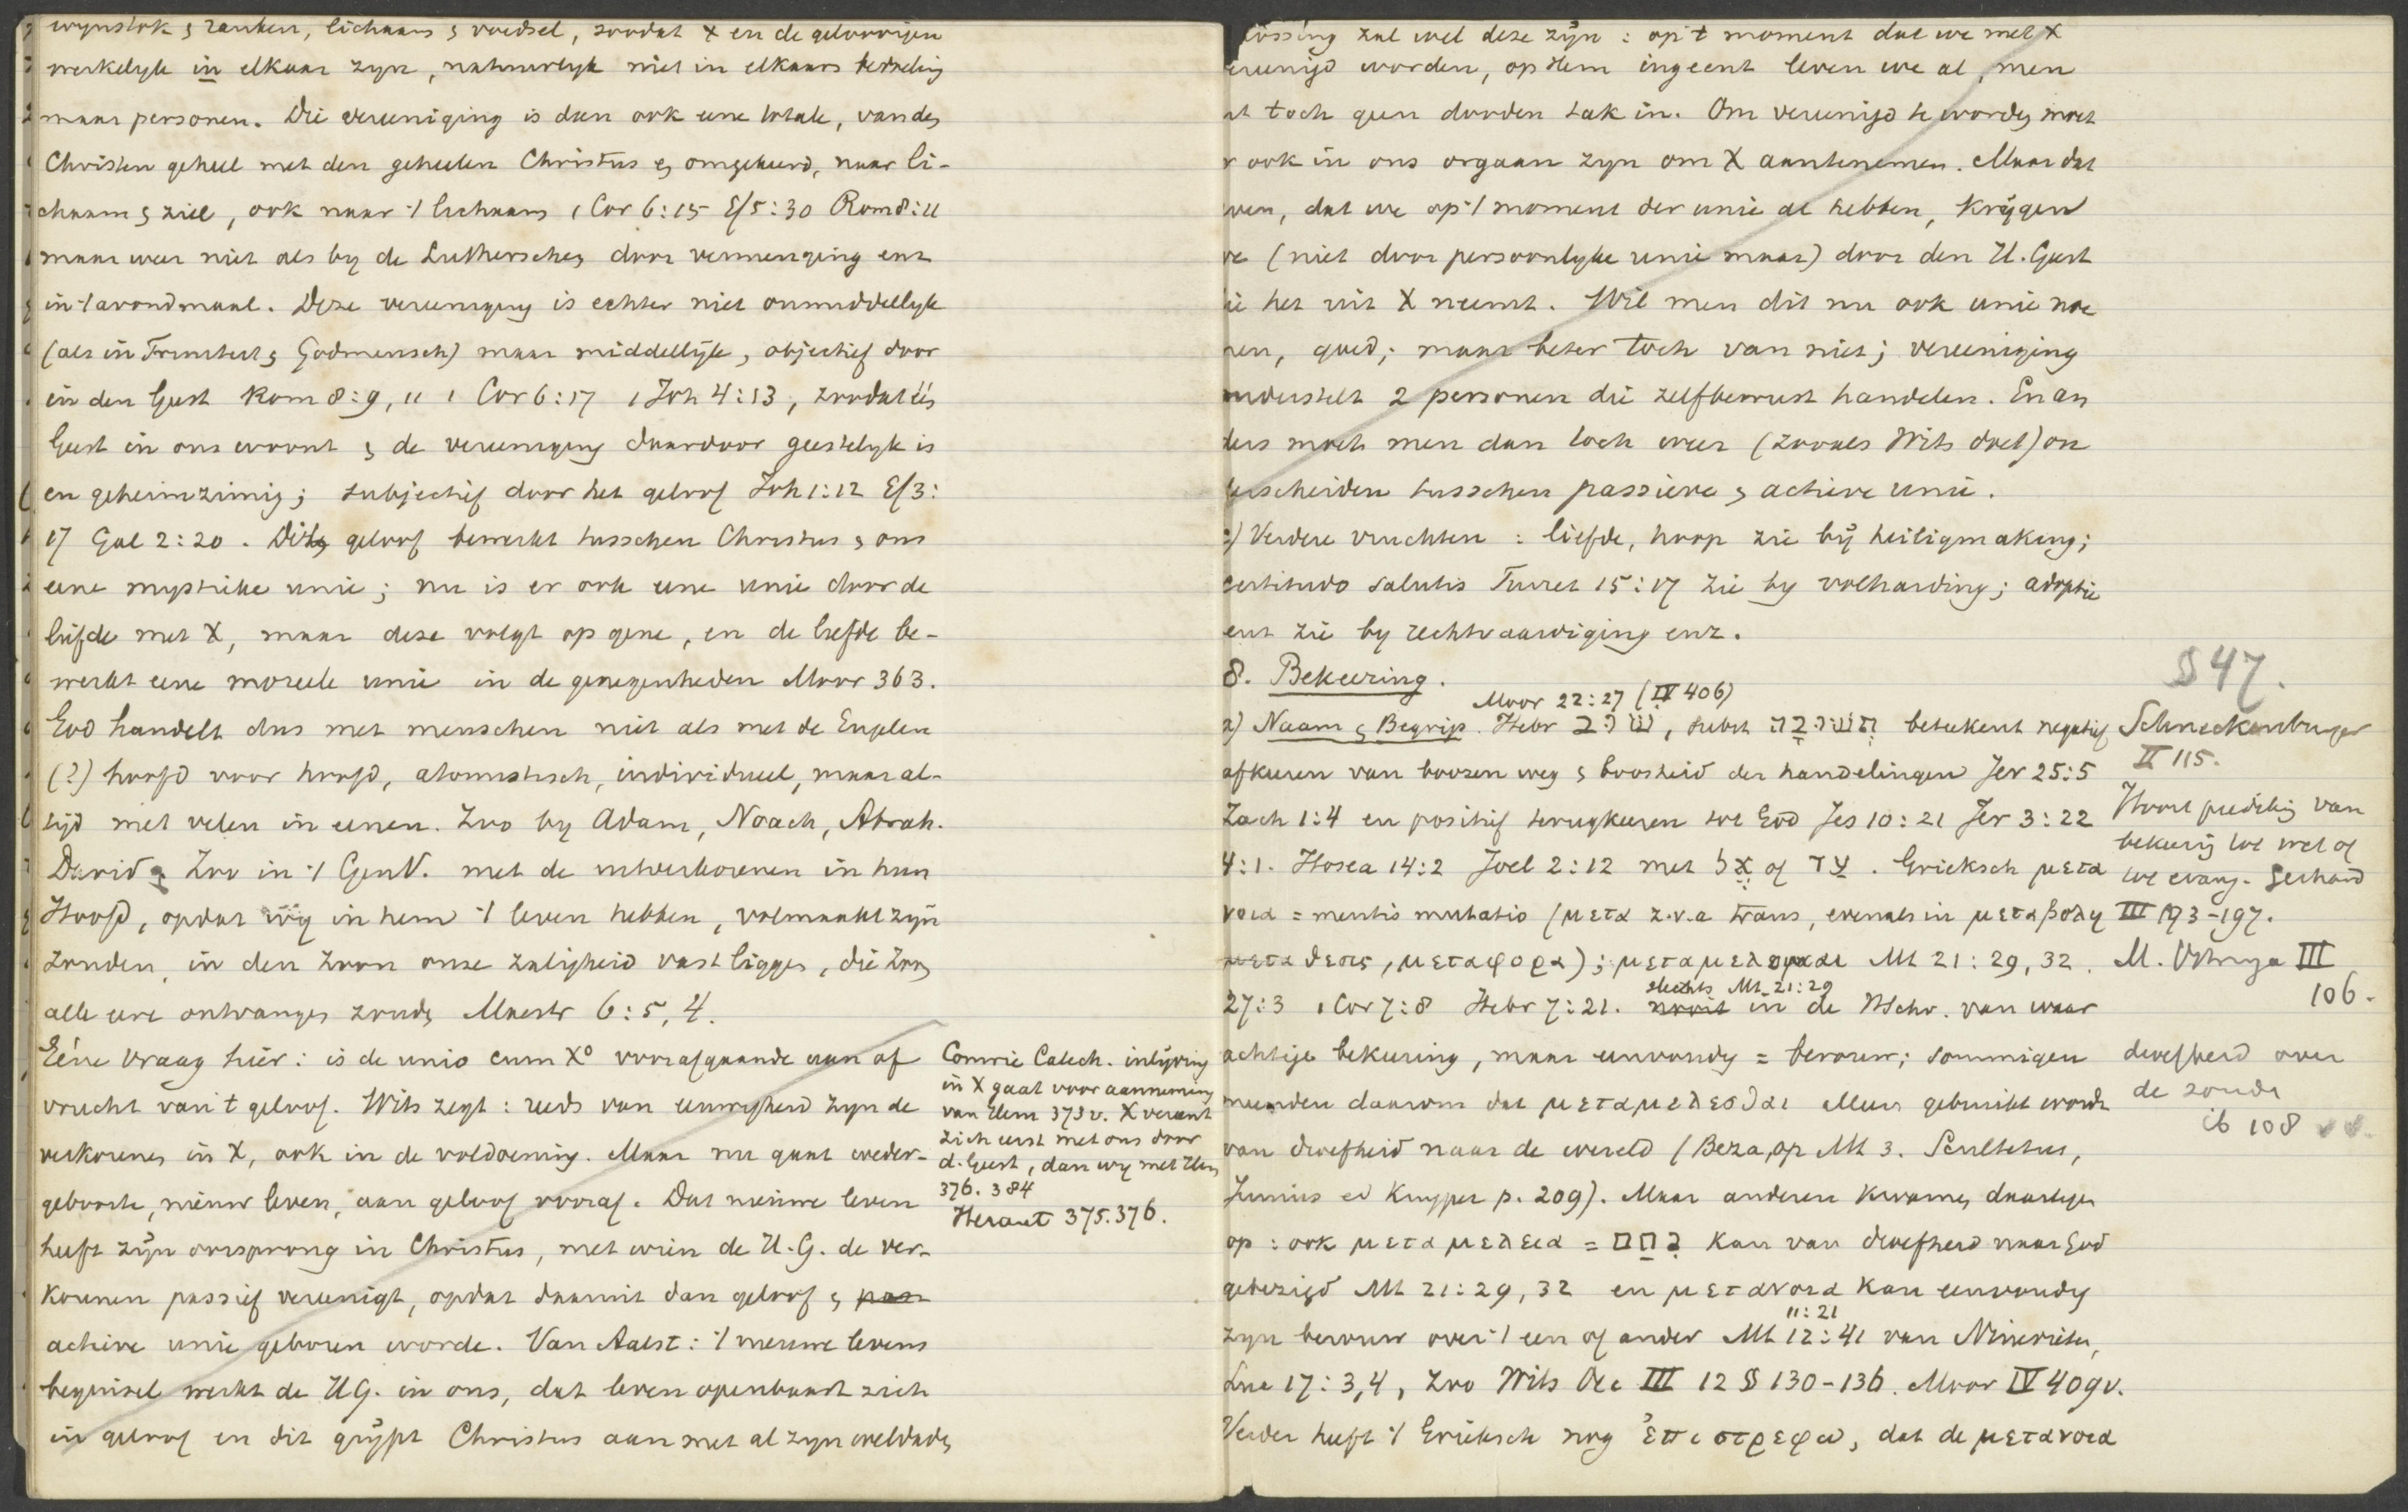 wynstok & ranken, lichaam & voedsel, zoodat X en de geloovigen
werkelyk in elkaar zyn, natuurlyk niet in elkaars
maar personen. Die vereeniging is dan ook eene totale, van den
Christen geheel met den geheelen Christus & omgekeerd, naar li-
chaam & ziel, ook naar 't lichaam 1 Cor 6:15 Ef 5:30 Rom 8:11
maar weer niet als by de Lutherschen door vermenging enz
in 't avondmaal. Deze vereeniging is echter niet onmiddellyk
(als in Triniteit & Godmensch) maar middellijk, objectief door
in den Geest Rom 8:9, 11 1 Cor 6:17 1 Joh 4:13, zoodat
Geest in ons woont & de vereeniging daardoor geestelyk is
en geheimzinnig; subjectief door het geloof Joh 1:12 Ef 3:
17 Gal 2:20. Dit geloof bewerkt tusschen Christus & ons
eene mystieke unie; nu is er ook eene unie door de
liefde met X, maar deze volgt op gene, en de liefde be-
werkt eene moreele unie in de genegenheden Moor 363.
God handelt dus met menschen niet als met de Engelen
(?) hoofd voor hoofd, atomistisch, individueel, maar al-
tijd met velen in eenen. Zoo by Adam, Noach, Abrah.
David & Zoo in 't GenV. met de uitverkorenen in hun
Hoofd, opdat wij in hem 't leven hebben, volmaakt zyn
zouden, in den Zoon onze zaligheid vast ligge, die Zoon
alle eere ontvangen zoude Maestr 6:5, 4.
Eéne vraag hier: is de unio cum Xo voorafgaande aan of
vrucht van 't geloof. Wits zegt: reeds van eeuwigheid zyn de
verkorenen in X, ook in de voldoening. Maar nu gaat weder-
geboorte, nieuw leven, aan geloof vooraf. Dat nieuwe leven
heeft zÿn oorsprong in Christus, met wien de H.G. de ver-
korenen passief vereenigt, opdat daaruit dan geloof & pass
actieve unie geboren worde. Van Aalst: 't nieuwe levens
beginsel werkt de HG. in ons, dat leven openbaart zich
in geloof en dit grÿpt Christus aan met al zyn weldaden
Comrie Catech. inlijving
in X gaat voor aanneming
van Hem 373 v. X vereent
zich eerst met ons door
d. Geest, dan wy met Hem
376. 384
Heraut 375. 376.
lossing zal wel deze zÿn: op 't moment dat we met X
ereenigd worden, op Hem ingeent leven we al, men
nt toch geen dooden tak in. Om vereenigd te worden moet
r ook in ons orgaan zyn om X aantenemen. Maar dat
ven, dat we op 't moment der unie al hebben, krijgen
we (niet door persoonlyke unie maar) door den H. Geest
ie het uit X neemt. Wil men dit nu ook unie noe
men, goed; maar beter toch van niet; vereeniging
onderstelt 2 personen die zelfbewust handelen. En an
ders moet men dan toch weer (zooals Wits doet) on
derscheiden tusschen passieve & actieve unie.
) Verdere vruchten: liefde, hoop zie bÿ heiligmaking;
certitudo salutis Turret 15:17 zie by volharding; adoptie
enz zie by rechtvaardiging enz.
8. Bekeering.
Moor 22:27 (IV 406)
a) Naam & Begrip. Hebr שוב, subst תשובה beteekent negatief
afkeeren van boozen weg & boosheid der handelingen Jer 25:5
Zach 1:4 en positief terugkeeren tot God Jes 10:21 Jer 3:22
4:1. Hosea 14:2 Joel 2:12 met אל of עד. Grieksch μετα
νοια = mentis mutatio (μετα z.v.a trans, evenals in μεταβολη
μεταθεσις, μεταφορα); μεταμελομαι Mt 21:29, 32.
slechts Mt. 21:29
27:3 1 Cor 7:8 Hebr 7:21. nooit in de HSchr. van waar
achtige bekeering, maar eenvoudig = berouw; sommigen
meenden daarom dat μεταμελεσθαι alleen gebruikt wordt
van droefheid naar de wereld (Beza op Mt 3. Scultetus,
Junius ed Kuyper p. 209). Maar anderen kwamen daartegen
op: ook μεταμελεια = נחם kan van droefheid naar God
gebezigd Mt 21:29, 32 en μετανοια kan eenvoudig
11:21
zyn berouw over 't een of ander Mt 12:41 van Ninevieten,
Luc 17:3,4, zoo Wits Oec III 12 § 130-136. Moor IV 409v.
Verder heeft 't Grieksch nog ἐπιστρεφω, dat de μετανοια
§ 47.
Schneckenburger
II 115.
Hoort prediking van
bekeering tot wet of
tot evang. Gerhard
III 193-197.
M. Vitringa III
106.
droefheid over
de zonde
ib 108 vv.